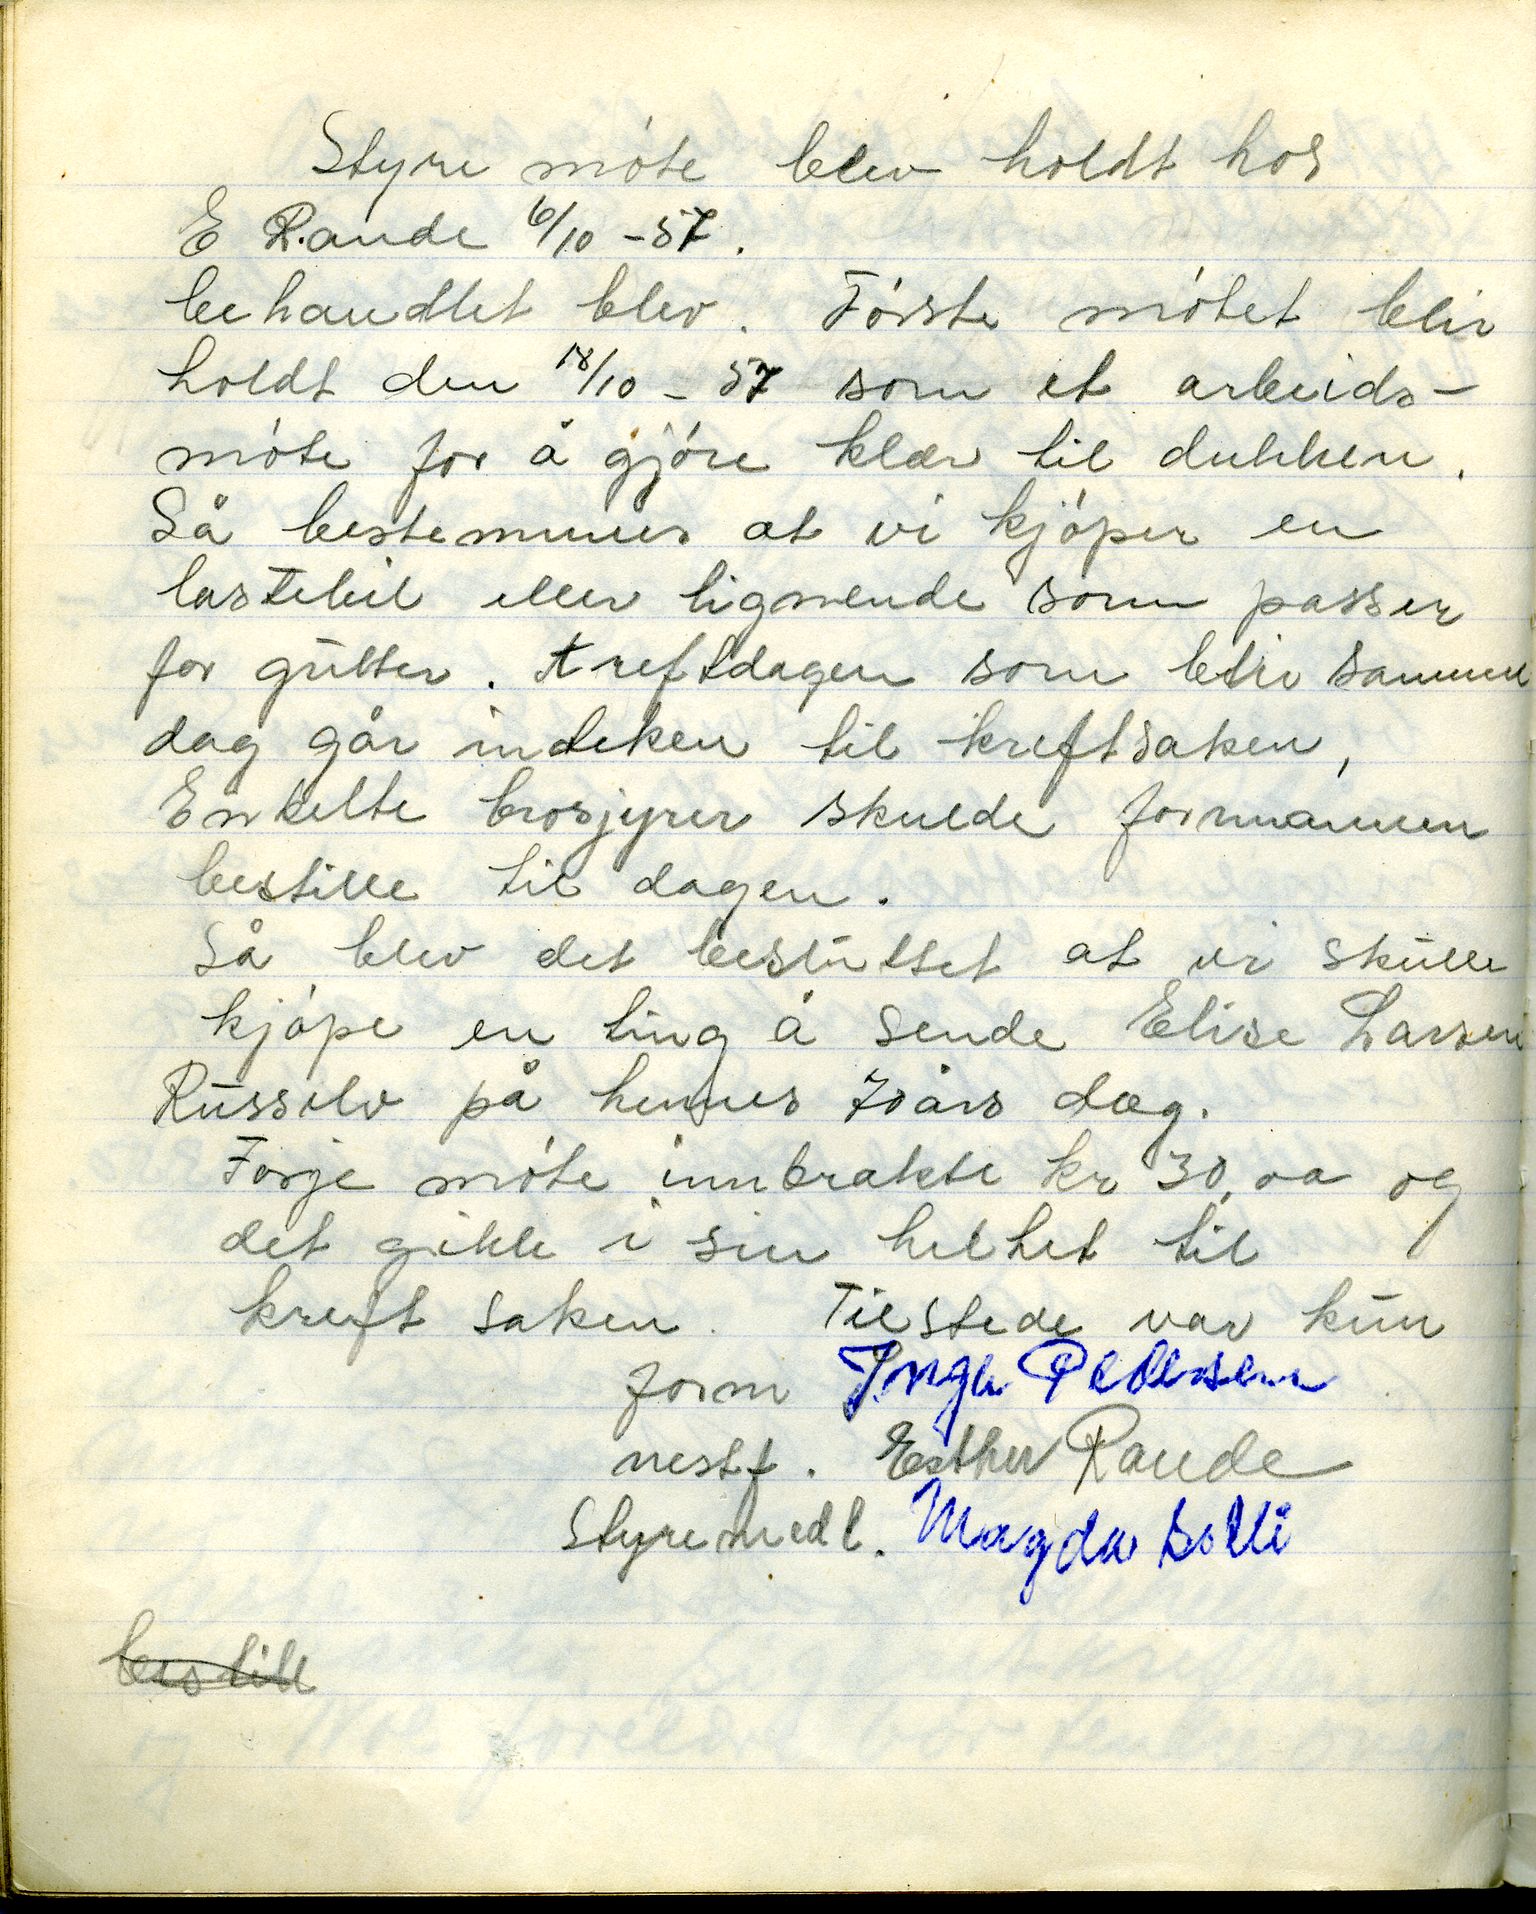 Styre møte blev holdt hos
E Rande 6/10 - 57.
behandlet blev. Første møtet blir
holdt den 18/10 - 57 som et arbeids-
møte for å gjøre klær til dukken.
Så bestemmes at vi kjøper en
lastebil eller lignende som passer
for gutter. Kreftdagen som blir samme
dag går intekten til kreftsaken,
Enkelte brosjyrer skulde formannen
bestille til dagen.
Så blev det besluttet at vi skulle
kjøpe en ting å sende Elise Larsen
Russelv på hennes 70års dag.
Forje møte innbrakte kr 30,00 og
det gikk i sin helhet til
kreft saken. Tilstede var kun
form Inga Pedersen
nestf. Esther Rande
Styremedl. Magda Solli